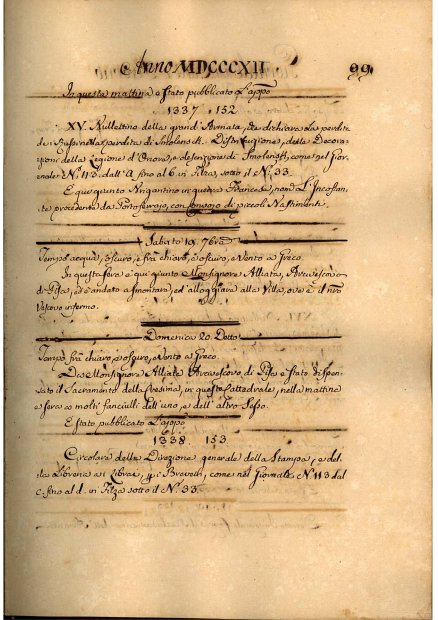 Anno MDCCCXII 99
In questa mattina è stato pubblicato L'appo
1337 152
XV. Bullettino della grand'Armata, che dichiara la perdita
de' Russi nella perdita di Smolensk. Distruzione, della Decora-
zioni della Legione d'Onore, e descrizione di Smolensk, come nel Gior-
nale N. 113. dall'A sino al 6 in Filza, sotto il N. 33.
E qui giunto un Brigantino in guerra Francese, nom.º L'Incostan-
te procedente da Portoferrajo, con di piccoli Bastimenti.
Sabato 19. 7bre
Tempo acqua, oscuro, e frà chiaro, e oscuro, e vento a Greco.
In questa sera è qui giunto Monsignore Alliata, Arcivescovo
di Pisa, ed è andato a smontare, ed alloggiare alla Villa, ove è il nro
Vescovo infermo.
Domenica 20. Detto
Tempo frà chiaro, e oscuro, e vento a Greco.
Da Monsignore Alliata Arcivescovo di Pisa è stato dispen-
sato il Sacramento della Cresima, in questa Cattedrale, nella mattina
e sera a molti fanciulli dell'uno, e dell'altro Sesso.
E stato pubblicato L'appo
1338 153
Circolare della Direzione generale della Stampa, e del-
la Libreria ai Librai, p. i Brevetti, come nel Giornale N. 113 dal
c. sino al d. in Filza sotto il N. 33.